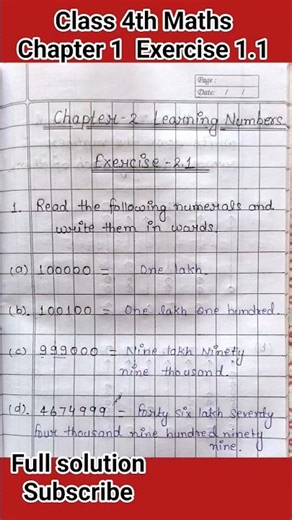 Class 4th Maths
Chapter 1 Exercise 1.1
Page :
Date: / /
Chapter-2 Learning Numbers
Exercise-2.1
1. Read the following numerals and
write them in words
(a) 100000 = One lakh.
(b). 100100 = One lakh one hundred.
(c) 999000 = Nine lakh Ninety
nine thousand.
(d). 4674999 = Forty six lakh seventy
four thousand nine hundred ninety
nine.
Full solution
Subscribe